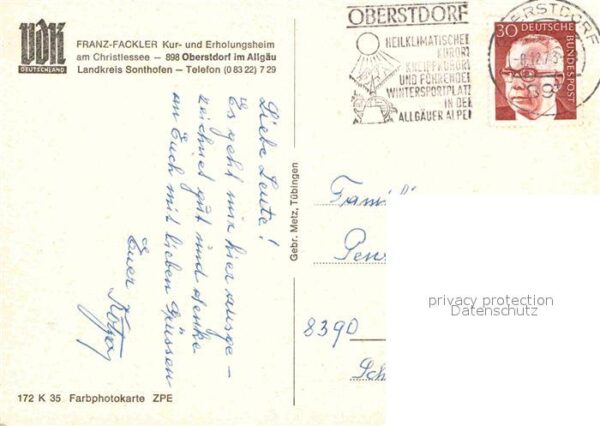 VdK
DEUTSCHLAND
FRANZ-FACKLER Kur- und Erholungsheim
am Christlessee — 898 Oberstdorf im Allgäu
Landkreis Sonthofen — Telefon (0 83 22) 7 29
OBERSTDORF
HEILKLIMATISCHER
KURORT
KNEIPPKURORT
UND FÜHRENDER
WINTERSPORTPLATZ
IN DEN
ALLGÄUER ALPEN
OBERSTDORF
30 DEUTSCHE
BUNDESPOST
Liebe Leute!
Es geht mir hier ausge-
zeichnet gut und denke
an Euch mit lieben Grüssen
Euer
Gebr. Metz, Tübingen
Famili
Pen
8390
Sch
privacy protection
Datenschutz
172 K 35 Farbphotokarte ZPE